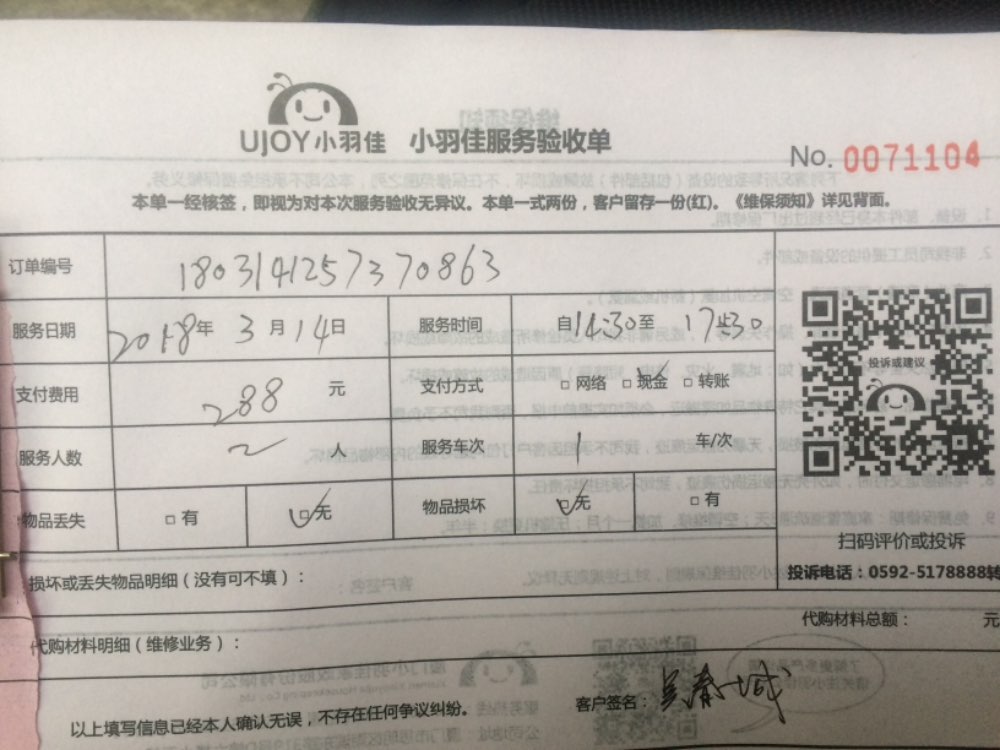 UJOY小羽佳 小羽佳服务验收单
No. 0071104
本单一经核签，即视为对本次服务验收无异议。本单一式两份，客户留存一份(红)。《维保须知》详见背面。
订单编号 180314125737​0863
服务日期 2018年 3月 14日 服务时间 自14:30至 17:30
支付费用 288 元 支付方式 □ 网络 □ 现金 □ 转账
投诉或建议
服务人数 2 人 服务车次 1 车/次
物品丢失 □ 有 ☑无 物品损坏 ☑无 □ 有
扫码评价或投诉
投诉电话：0592-5178888转
损坏或丢失物品明细（没有可不填）：
代购材料总额： 元
代购材料明细（维修业务）：
以上填写信息已经本人确认无误，不存在任何争议纠纷。 客户签名：